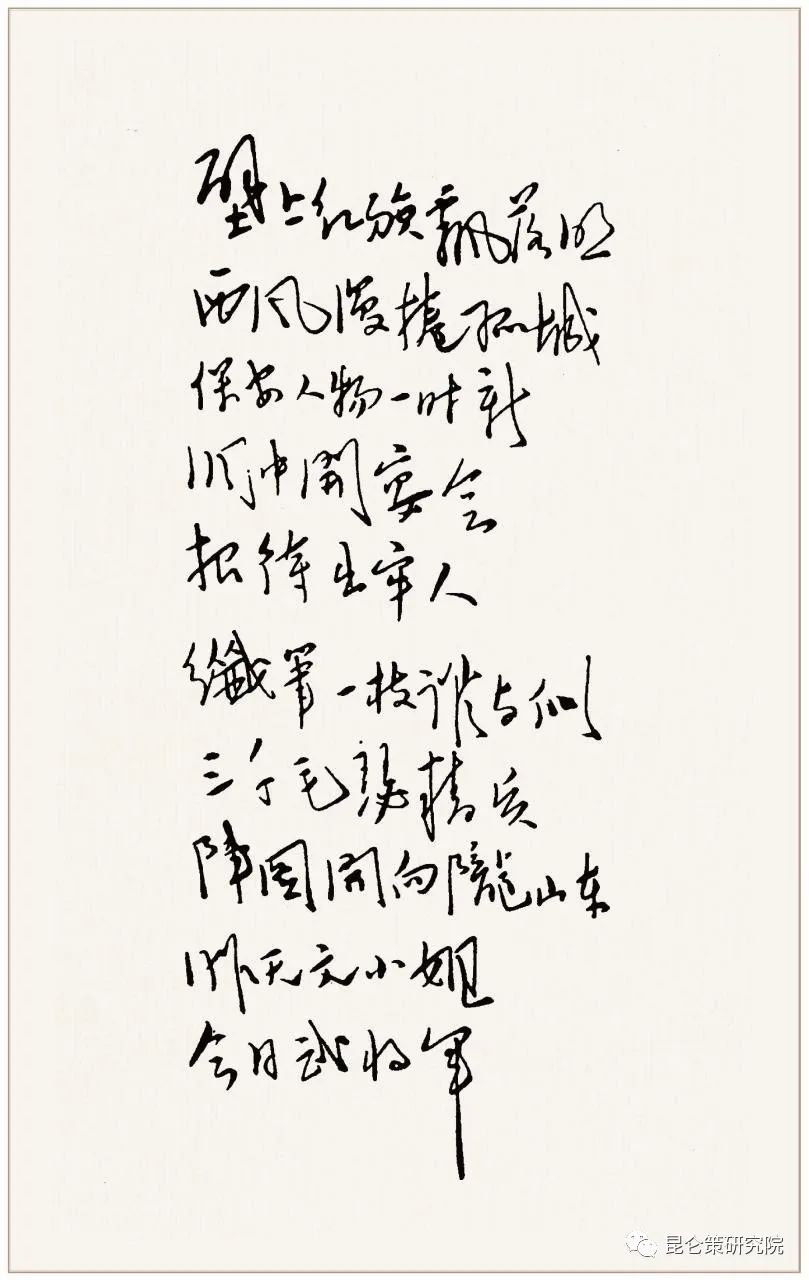 壁上红旗飘落照
西风漫捲孤城
保安人物一时新
洞中開宴会
招待出牢人
纖筆一枝谁与似
三千毛瑟精兵
阵图開向隴山东
昨天文小姐
今日武将军
昆仑策研究院